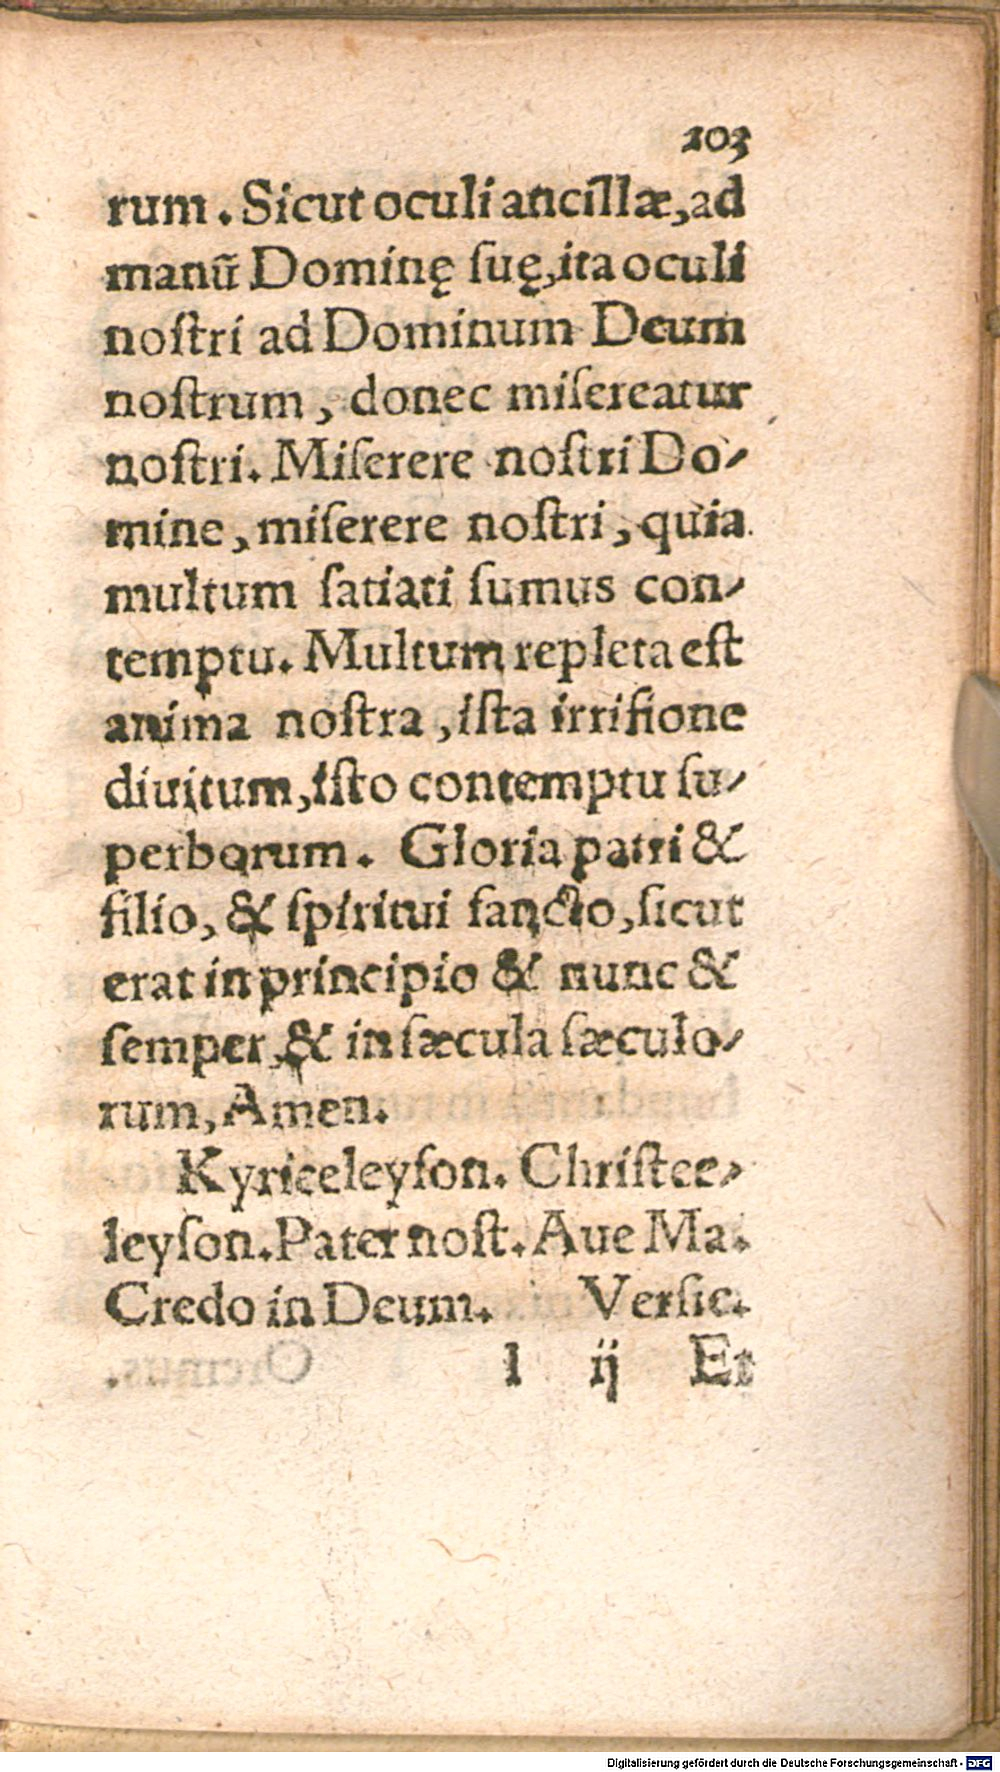 103
rum. Sicut oculi ancillæ, ad
manū Dominę ſuę, ita oculi
noſtri ad Dominum Deum
noſtrum, donec miſereatur
noſtri. Miſerere noſtri Do-
mine, miſerere noſtri, quia
multum ſatiati ſumus con-
temptu. Multum repleta eſt
anima noſtra, iſta irriſione
diuitum, iſto contemptu ſu-
perborum. Gloria patri &
filio, & ſpiritui ſancto, ſicut
erat in principio & nunc &
ſemper, & in ſæcula ſæculo-
rum, Amen.
Kyrieeleyſon. Chriſtee-
leyſon. Pater noſt. Aue Ma.
Credo in Deum. Verſic.
l ij Et
Digitalisierung gefördert durch die Deutsche Forschungsgemeinschaft - DFG